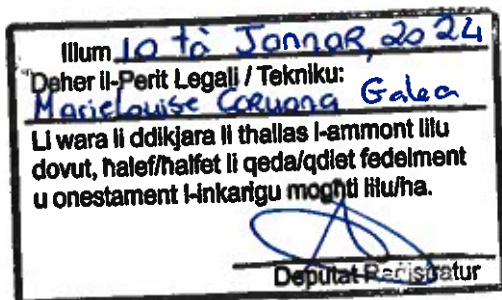 Illum 10 ta' Jannar, 2024
Deher il-Perit Legali / Tekniku:
Marielouise Caruana Galea
Li wara li ddikjara li thallas l-ammont lilu
dovut, ħalef/ħalfet li qeda/qdiet fedelment
u onestament l-inkarigu mogħti lilu/ha.
Deputat Reġistratur